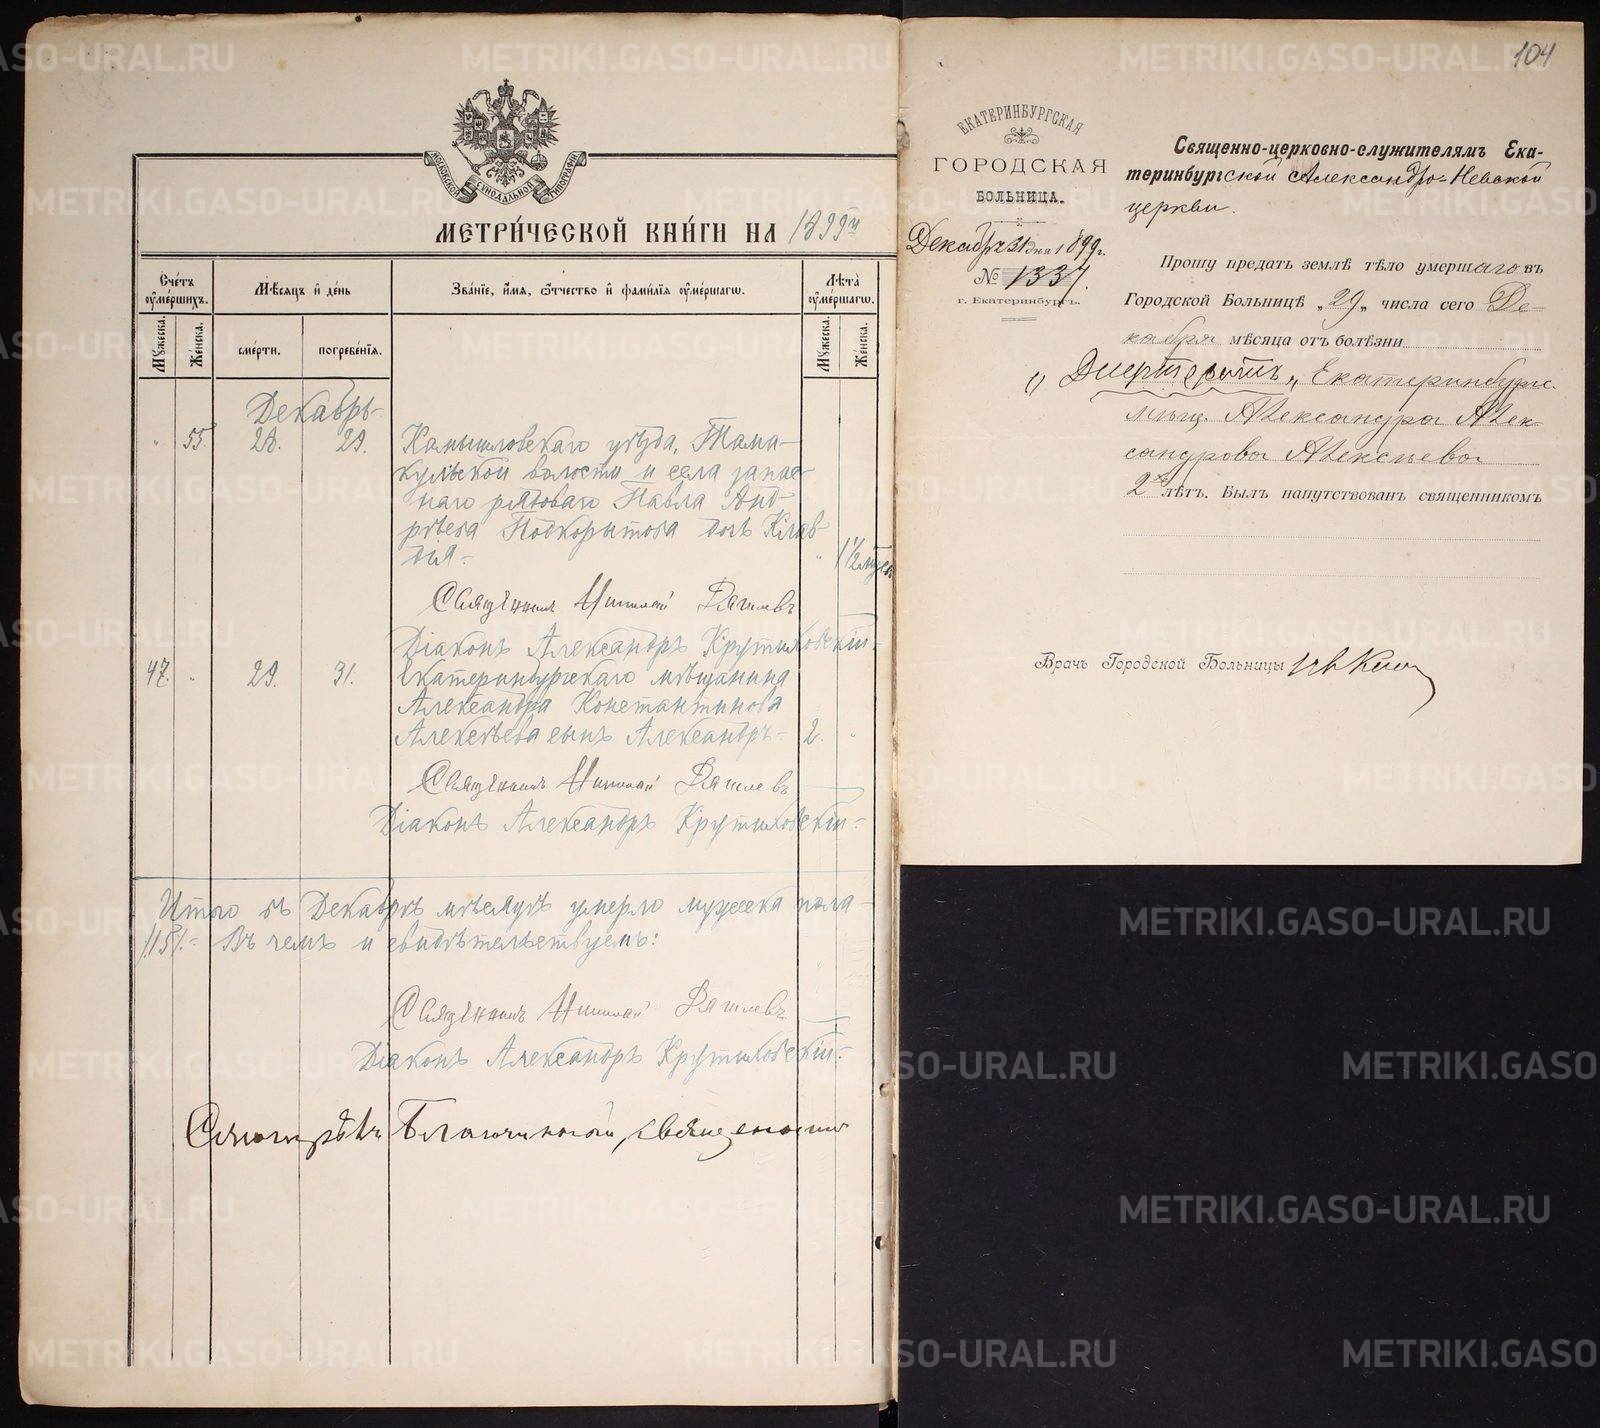 МОСКОВСКОЙ СУНОДАЛЬНОЙ ТИПОГРАФІИ
МЕТРИЧЕСКОЙ КНИГИ НА 1899й
Счетъ умершихъ.
Мѣсяцъ и день
Званіе, имя, отчество и фамилія умершаго.
Лѣта умершаго.
Мужеска.
Женска.
смерти.
погребенія.
Мужеска.
Женска.
Декабрь
" 55. 28. 29. Камышловскаго уѣзда, Тама-
кульской волости и села запас-
наго рядоваго Павла Анд-
реева Подкорытова дочь Клав-
дія - " 1 1/2
Священникъ Николай
Діаконъ Александръ Крутиховскій -
47. " 29. 31. Екатеринбургскаго мѣщанина
Александра Константинова
Алексѣева сынъ Александръ - 2. "
Священникъ Николай
Діаконъ Александръ Крутиховскій -
Итого въ Декабрѣ мѣсяцѣ умерло мужеска пола -
Въ чемъ и свидѣтельствуемъ:
Священникъ Николай
Діаконъ Александръ Крутиховскій -
Благочинный, священникъ
104
ЕКАТЕРИНБУРГСКАЯ
ГОРОДСКАЯ
БОЛЬНИЦА.
Декабря 31 дня 1899 г.
№ 1337.
г. Екатеринбургъ.
Священно-церковно-служителямъ Ека-
теринбургской Александро-Невской
церкви.
Прошу предать землѣ тѣло умершаго въ
Городской Больницѣ „29„ числа сего Де-
кабря мѣсяца отъ болѣзни
Екатеринбург.
мѣщ. Александра Алек-
сандрова Алексѣева
2хъ лѣтъ. Былъ напутствованъ священникомъ
Врачъ Городской Больницы
METRIKI.GASO-URAL.RU